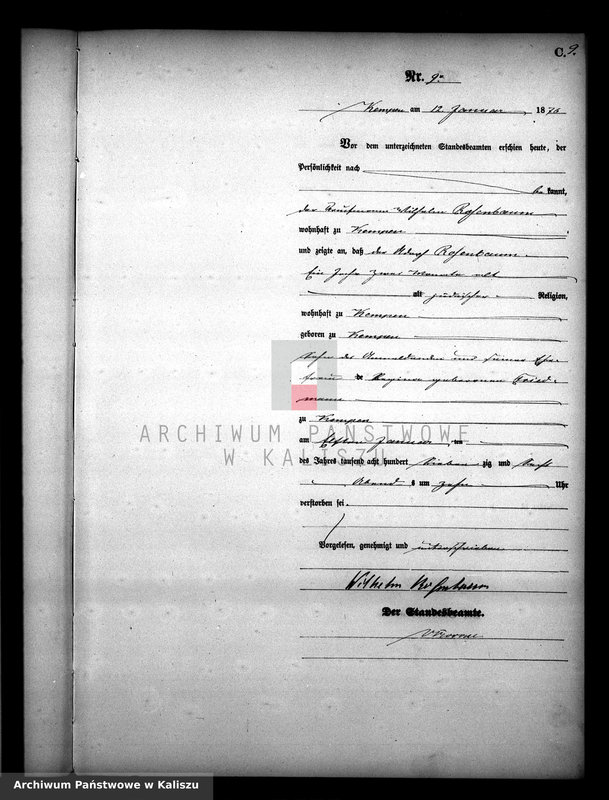 C. 9.
Nr. 9.
Kempen am 12. Januar 1876
Vor dem unterzeichneten Standesbeamten erschien heute, der
Persönlichkeit nach
be kannt,
der Kaufmann Wilhelm Rosenbaum
wohnhaft zu Kempen
und zeigte an, daß der Adolf Rosenbaum
Ein Jahr zwei Monate alt
alt jüdischer Religion,
wohnhaft zu Kempen
geboren zu Kempen
Sohn des Anmeldenden und seiner Ehe
frau Regina geborenen Fried-
mann
zu Kempen
am Elften Januar ten
des Jahres tausend acht hundert sieben zig und sechs
Abends um zehn Uhr
verstorben sei.
Vorgelesen, genehmigt und unterschrieben
Wilhelm Rosenbaum
Der Standesbeamte.
ARCHIWUM PAŃSTWOWE
W KALISZU
Archiwum Państwowe w Kaliszu